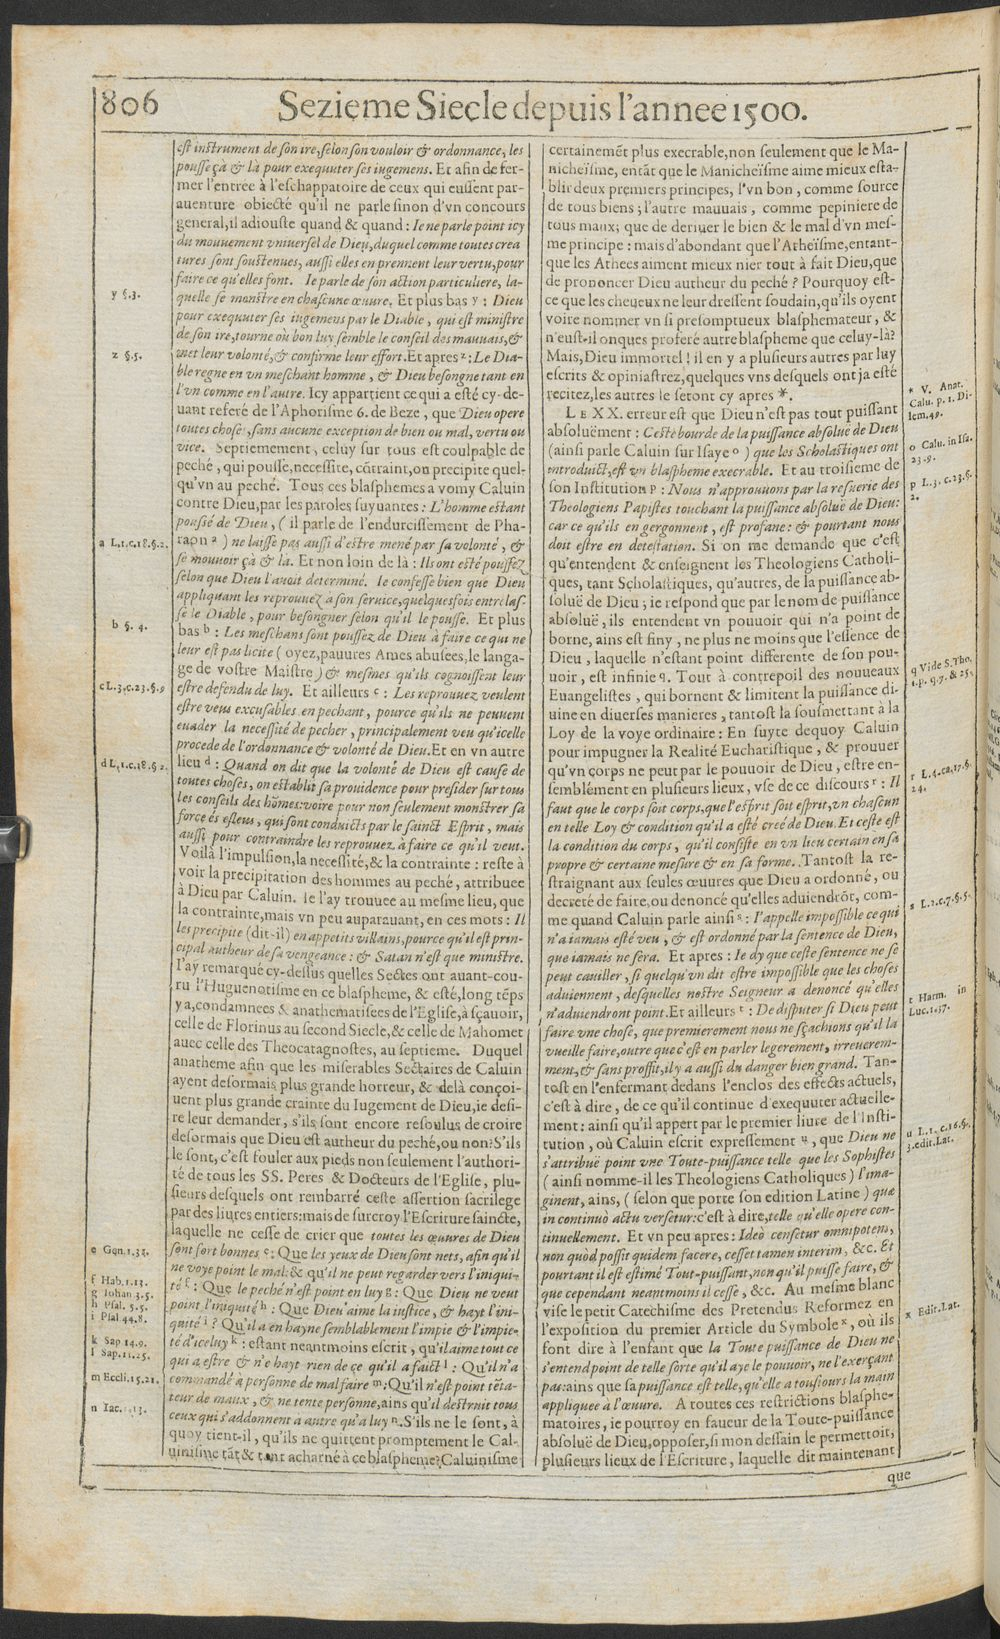 806
Sezieme Siecle depuis l'annee 1500.
est instrument de son ire, selon son vouloir & ordonnance, les
pousse çà & là pour exequuter ses iugemens. Et afin de fer-
mer l'entree à l'eschappatoire de ceux qui eussent par-
auenture obiecté qu'il ne parle sinon d'vn concours
general, il adiouste quand & quand : Ie ne parle point icy
du mouuement vniuersel de Dieu, duquel comme toutes crea
tures sont soustenues, aussi elles en prennent leur vertu, pour
faire ce qu'elles font. Ie parle de son action particuliere, la-
quelle se monstre en chascune œuure. Et plus bas y : Dieu
pour exequuter ses iugemens par le Diable, qui est ministre
de son ire, tourne où bon luy semble le conseil des mauuais, &
met leur volonté, & confirme leur effort. Et apres z : Le Dia-
ble regne en vn meschant homme, & Dieu besongne tant en
l'vn comme en l'autre. Icy appartient ce qui a esté cy-de-
uant referé de l'Aphorisme 6. de Beze, que Dieu opere
toutes choses, sans aucune exception de bien ou mal, vertu ou
vice. Septiemement, celuy sur tous est coulpable de
peché, qui pousse, necessite, cõtraint, ou precipite quel-
qu'vn au peché. Tous ces blasphemes a vomy Caluin
contre Dieu, par les paroles suyuantes : L'homme estant
poussé de Dieu, ( il parle de l'endurcissement de Pha-
raon a ) ne laisse pas aussi d'estre mené par sa volonté, &
se mouuoir çà & là. Et non loin de là : Ils ont esté poussez
selon que Dieu l'auoit determiné. Ie confesse bien que Dieu
appliquant les reprouuez à son seruice, quelquesfois entrelas-
se le Diable, pour besongner selon qu'il le pousse. Et plus
bas b : Les meschans sont poussez de Dieu à faire ce qui ne
leur est pas licite ( oyez, pauures Ames abusees, le langa-
ge de vostre Maistre ) & mesmes qu'ils cognoissent leur
estre defendu de luy. Et ailleurs c : Les reprouuez veulent
estre veus excusables en pechant, pource qu'ils ne peuuent
euader la necessité de pecher, principalement veu qu'icelle
procede de l'ordonnance & volonté de Dieu. Et en vn autre
lieu d : Quand on dit que la volonté de Dieu est cause de
toutes choses, on establit sa prouidence pour presider sur tous
les conseils des hõmes: voire pour non seulement monstrer sa
force és esleus, qui sont conduicts par le sainct Esprit, mais
aussi pour contraindre les reprouuez à faire ce qu'il veut.
Voilà l'impulsion, la necessité, & la contrainte : reste à
voir la precipitation des hommes au peché, attribuee
à Dieu par Caluin. Ie l'ay trouuee au mesme lieu, que
la contrainte, mais vn peu auparauant, en ces mots : Il
les precipite (dit-il) en appetits villains, pource qu'il est prin-
cipal autheur de sa vengeance : & Satan n'est que ministre.
I'ay remarqué cy-dessus quelles Sectes ont auant-cou-
ru l'Huguenotisme en ce blaspheme, & esté, long tẽps
y a, condamnees & anathematisees de l'Eglise, à sçauoir,
celle de Florinus au second Siecle, & celle de Mahomet
auec celle des Theocatagnostes, au septieme. Duquel
anatheme afin que les miserables Sectaires de Caluin
ayent desormais plus grande horreur, & delà conçoi-
uent plus grande crainte du Iugement de Dieu, ie desi-
re leur demander, s'ils sont encore resoulus de croire
desormais que Dieu est autheur du peché, ou non? S'ils
le sont, c'est fouler aux pieds non seulement l'authori-
té de tous les SS. Peres & Docteurs de l'Eglise, plu-
sieurs desquels ont rembarré ceste assertion sacrilege
par des liures entiers: mais de surcroy l'Escriture saincte,
laquelle ne cesse de crier que toutes les œuures de Dieu
sont fort bonnes e : Que les yeux de Dieu sont nets, afin qu'il
ne voye point le mal: & qu'il ne peut regarder vers l'iniqui-
té f : Que le peché n'est point en luy g : Que Dieu ne veut
point l'iniquité h : Que Dieu aime la iustice, & hayt l'ini-
quité i ? Qu'il a en hayne semblablement l'impie & l'impie-
té d'iceluy k : estant neantmoins escrit, qu'il aime tout ce
qui a estre & n'e hayt rien de çe qu'il a faict l : Qu'il n'a
commandé à personne de mal faire m : Qu'il n'est point tẽta-
teur de maux, & ne tente personne, ains qu'il destruit tous
ceux qui s'addonnent a autre qu'a luy n. S'ils ne le sont, à
quoy tient-il, qu'ils ne quittent promptement le Cal-
uinisme tãt & tant acharné à ce blaspheme? Caluinisme
y §.3.
z §.5.
a L.1.c.18.§.2.
b §. 4.
c L.3.c.23.§.9
d L.1.c.18.§ 2.
e Gen.1.31.
f Hab.1.13.
g Iohan 3.5.
h Psal. 5.5.
i Psal 44.8.
k Sap 14.9.
l Sap.11.25.
m Eccli.15.21.
n Iac.1.13.
certainemẽt plus execrable, non seulement que le Ma-
nicheïsme, entãt que le Manicheïsme aime mieux esta-
blir deux premiers principes, l'vn bon, comme source
de tous biens ; l'autre mauuais, comme pepiniere de
tous maux; que de deriuer le bien & le mal d'vn mes-
me principe : mais d'abondant que l'Atheïsme, entant-
que les Athees aiment mieux nier tout à fait Dieu, que
de prononcer Dieu autheur du peché ? Pourquoy est-
ce que les cheueux ne leur dressent soudain, qu'ils oyent
voire nommer vn si presomptueux blasphemateur, &
n'eust-il onques proferé autre blaspheme que celuy-là?
Mais, Dieu immortel ! il en y a plusieurs autres par luy
escrits & opiniastrez, quelques vns desquels ont ja esté
recitez, les autres le seront cy apres *.
LE XX. erreur est que Dieu n'est pas tout puissant
absoluëment : Ceste bourde de la puissance absoluë de Dieu
(ainsi parle Caluin sur Isaye o ) que les Scholastiques ont
introduict, est vn blaspheme execrable. Et au troisieme de
son Institution p : Nous n'approuuons par la resuerie des
Theologiens Papistes touchant la puissance absoluë de Dieu:
car ce qu'ils en gergonnent, est profane: & pourtant nous
doit estre en detestation. Si on me demande que c'est
qu'entendent & enseignent les Theologiens Catholi-
ques, tant Scholastiques, qu'autres, de la puissance ab-
soluë de Dieu ; ie respond que par le nom de puissance
absoluë, ils entendent vn pouuoir qui n'a point de
borne, ains est finy, ne plus ne moins que l'essence de
Dieu, laquelle n'estant point differente de son pou-
uoir, est infinie q. Tout à contrepoil des nouueaux
Euangelistes, qui bornent & limitent la puissance di-
uine en diuerses manieres, tantost la sousmettant à la
Loy de la voye ordinaire : En suyte dequoy Caluin
pour impugner la Realité Eucharistique, & prouuer
qu'vn corps ne peut par le pouuoir de Dieu, estre en-
semblément en plusieurs lieux, vse de ce discours r : Il
faut que le corps soit corps, que l'esprit soit esprit, vn chascun
en telle Loy & condition qu'il a esté creé de Dieu. Et ceste est
la condition du corps, qu'il consiste en vn lieu certain en sa
propre & certaine mesure & en sa forme. Tantost la re-
straignant aux seules œuures que Dieu a ordonné, ou
decreté de faire, ou denoncé qu'elles aduiendrõt, com-
me quand Caluin parle ainsi s : I'appelle impossible ce qui
n'a iamais esté veu, & est ordonné par la sentence de Dieu,
que iamais ne sera. Et apres : Ie dy que ceste sentence ne se
peut cauiller, si quelqu'vn dit estre impossible que les choses
aduiennent, desquelles nostre Seigneur a denoncé qu'elles
n'aduiendront point. Et ailleurs t : De disputer si Dieu peut
faire vne chose, que premierement nous ne sçachions qu'il la
vueille faire, outre que c'est en parler legerement, irreuerem-
ment, & sans proffit, il y a aussi du danger bien grand. Tan-
tost en l'enfermant dedans l'enclos des effects actuels,
c'est à dire, de ce qu'il continue d'exequuter actuelle-
ment : ainsi qu'il appert par le premier liure de l'Insti-
tution, où Caluin escrit expressement u, que Dieu ne
s'attribuë point vne Toute-puissance telle que les Sophistes
( ainsi nomme-il les Theologiens Catholiques ) l'ima-
ginent, ains, ( selon que porte son edition Latine ) quæ
in continuò actu versetur: c'est à dire, telle qu'elle opere con-
tinuellement. Et vn peu apres : Ideò censetur omnipotens,
non quòd possit quidem facere, cesset tamen interim, &c. Et
pourtant il est estimé Tout-puissant, non qu'il puisse faire, &
que cependant neantmoins il cesse, &c. Au mesme blanc
vise le petit Catechisme des Pretendus Reformez en
l'exposition du premier Article du Symbole x, où ils
font dire à l'enfant que la Toute puissance de Dieu ne
s'entend point de telle sorte qu'il aye le pouuoir, ne l'exerçant
pas: ains que sa puissance est telle, qu'elle a tousiours la main
appliquee à l'œuure. A toutes ces restrictions blasphe-
matoires, ie pourroy en faueur de la Toute-puissance
absoluë de Dieu, opposer, si mon dessain le permettoit,
plusieurs lieux de l'Escriture, laquelle dit maintenant
* V. Anat.
Calu. p. 1. Di-
lem.49.
o Calu. in Isa.
23.9.
p L.3. c.23.§.
2.
q Vide S. Tho.
1.p. q.7. & 25.
r L.4.ca.17.§.
24.
s L.2.c.7.§.5.
t Harm. in
Luc.1.37.
u L.1. c.16.§.
3.edit.Lat.
x Edit.Lat.
que